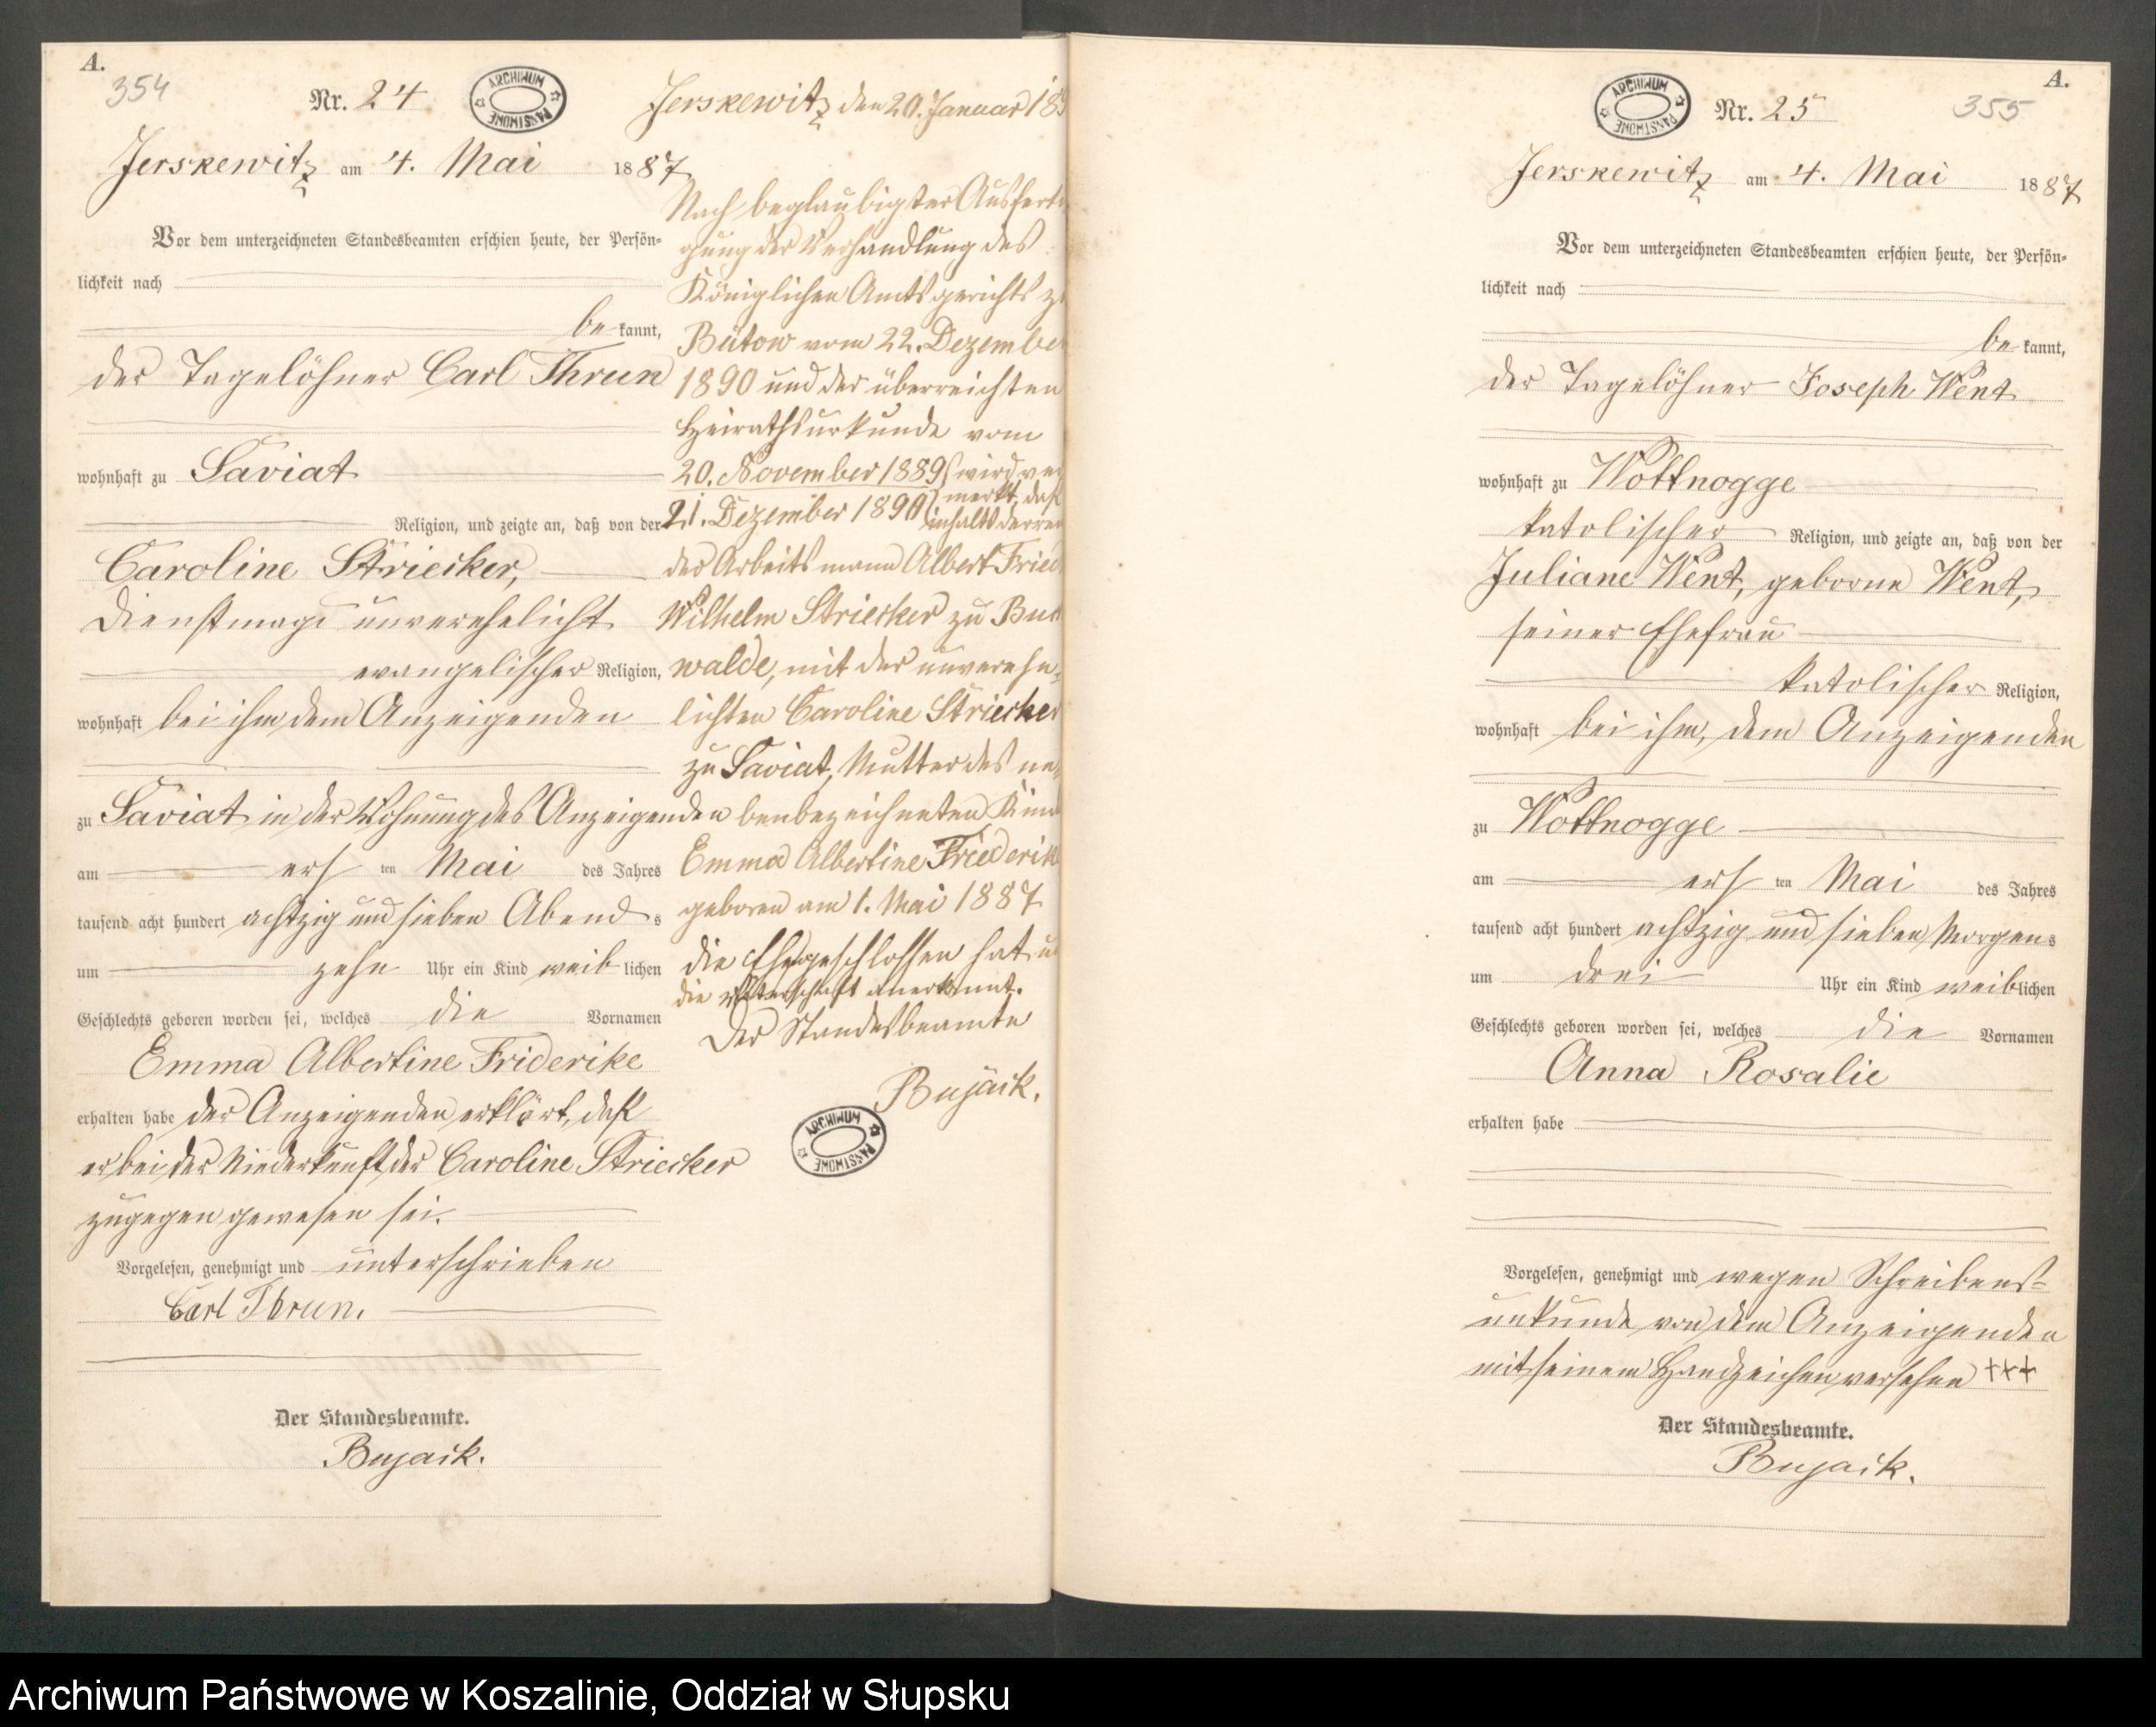 A.
354
Nr. 24
ARCHIWUM PAŃSTWOWE
Jerskewitz am 4. Mai 1887
Vor dem unterzeichneten Standesbeamten erschien heute, der Persön-
lichkeit nach
be kannt,
der Tagelöhner Carl Thrun
wohnhaft zu Saviat
Religion, und zeigte an, daß von der
Caroline Striecker,
Dienstmagd unverehelicht
evangelischer Religion,
wohnhaft bei ihm dem Anzeigenden
zu Saviat in der Wohnung des Anzeigenden
am ers ten Mai des Jahres
tausend acht hundert achtzig und sieben Abend s
um zehn Uhr ein Kind weib lichen
Geschlechts geboren worden sei, welches die Vornamen
Emma Albertine Friderike
erhalten habe der Anzeigenden erklärt, daß
er bei der Niederkunft der Caroline Striecker
zugegen gewesen sei.
Vorgelesen, genehmigt und unterschrieben
Carl Thrun.
Der Standesbeamte.
Bujack.
Jerskewitz den 20. Januar 189
Nach beglaubigter Ausferti
gung der Verhandlung des
Königlichen Amtsgerichts zu
Bütow vom 22. Dezember
1890 und der überreichten
Heirathsurkunde vom
20. November 1889 wird ver
merkt, daß
21. Dezember 1890 inhalts derren
der Arbeitsmann Albert Fried
Wilhelm Striecker zu Buch
walde, mit der unverehe-
lichten Caroline Striecker
zu Saviat, Mutter des ne
benbezeichneten Kind
Emma Albertine Friederike
geboren am 1. Mai 1887
die Ehe geschlossen hat u
die Vaterschaft anerkannt.
Der Standesbeamte
Bujack.
ARCHIWUM PAŃSTWOWE
A.
355
ARCHIWUM PAŃSTWOWE
Nr. 25
Jerskewitz am 4. Mai 1887
Vor dem unterzeichneten Standesbeamten erschien heute, der Persön-
lichkeit nach
be kannt,
der Tagelöhner Joseph Went
wohnhaft zu Wottnogge
katolischer Religion, und zeigte an, daß von der
Juliane Went, geborne Went,
seiner Ehefrau
katolischer Religion,
wohnhaft bei ihm, dem Anzeigenden
zu Wottnogge
am ers ten Mai des Jahres
tausend acht hundert achtzig und sieben Morgen s
um drei Uhr ein Kind weib lichen
Geschlechts geboren worden sei, welches die Vornamen
Anna Rosalie
erhalten habe
Vorgelesen, genehmigt und wegen Schreibens-
unkunde von dem Anzeigenden
mit seinem Handzeichen versehen +++
Der Standesbeamte.
Bujack.
Archiwum Państwowe w Koszalinie, Oddział w Słupsku